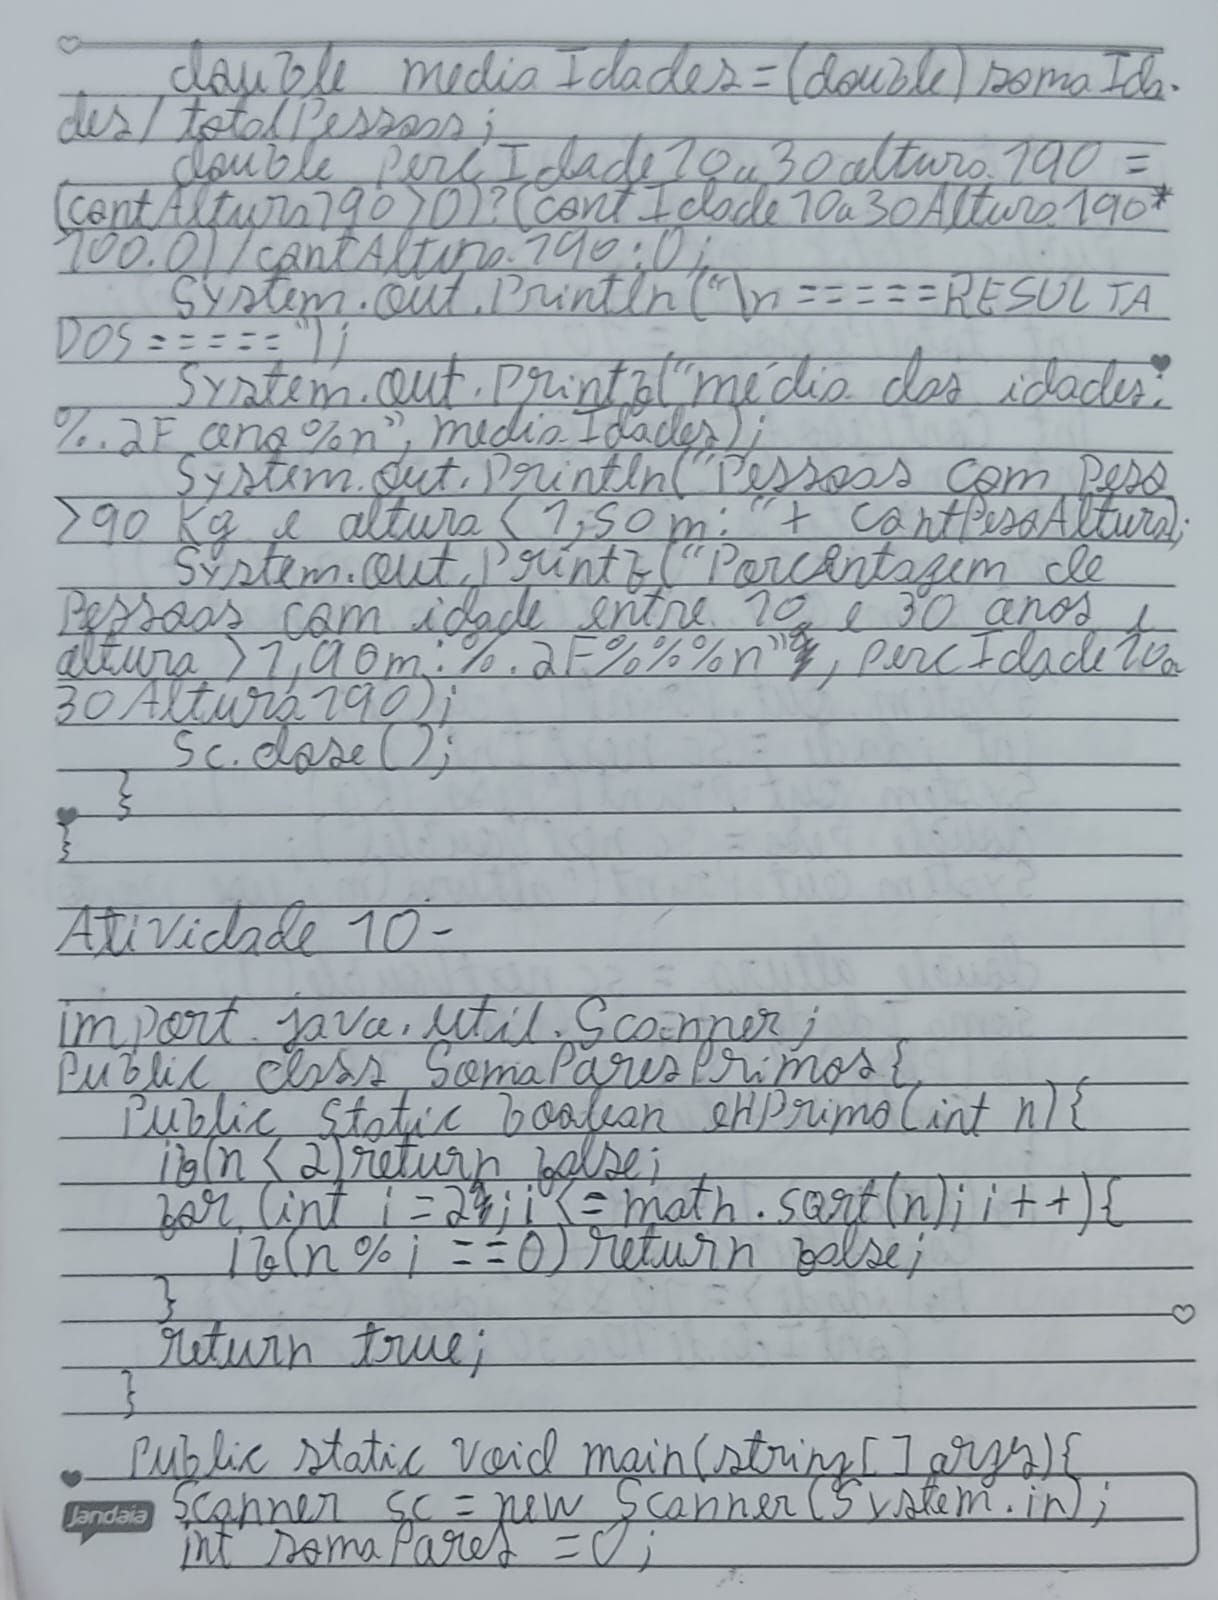 double mediaIdades=(double)somaIda-
des/totalPessoas;
double PercIdade10a30altura190 =
(contAltura190>0)?(contIdade10a30Altura190*
100.0)/contAltura190:0;
System.out.Println("\n=====RESULTA
DOS=====");
System.out.Printf("média das idades:
%.2F anos%n", mediaIdades);
System.out.Println("Pessoas com Peso
>90 Kg e altura <1,50m:"+ contPesoAltura);
System.out.Printf("Porcentagem de
Pessoas com idade entre 10 e 30 anos e
altura >1,90m:%.2F%%%n", percIdade10a
30Altura190);
Sc.close();
}
}
Atividade 10-
import java.util.Scanner;
Public class SomaParesPrimos{
Public static boolean eHPrimo(int n){
if(n<2)return false;
for (int i=2;i<=math.sqrt(n);i++){
if(n%i==0)return false;
}
return true;
}
Public static void main(string[]args){
Jandaia
Scanner sc=new Scanner(System.in);
int somaPares=0;